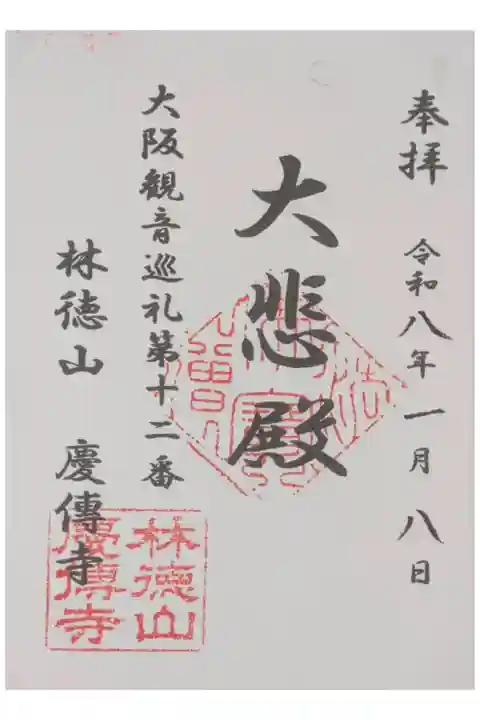 奉拝 令和八年一月八日
大悲殿
大阪観音巡礼第十二番
林徳山 慶傳寺
佛法僧寳
林徳山
慶傳寺